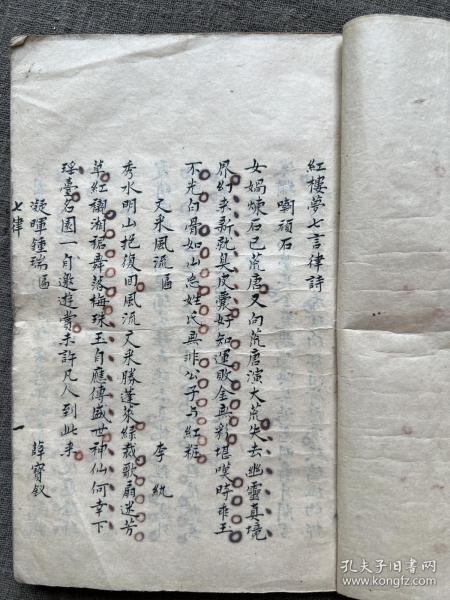 紅樓夢七言律詩
嘲頑石
女媧煉石已荒唐又向荒唐演大荒失去幽靈真境
界幻來新就臭皮囊好知運敗金無彩堪嘆時乖玉
不光白骨如山忘姓氏無非公子与紅粧
文采風流匾 李紈
秀水明山抱復回風流文采勝蓬萊綠裁歌扇迷芳
草紅襯湘裙舞落梅珠玉自應傳盛世神仙何幸下
瑤臺名園一自邀遊賞未許凡人到此來
凝暉鍾瑞匾 薛寶釵
七律 一
孔夫子旧书网
www.kongfz.com